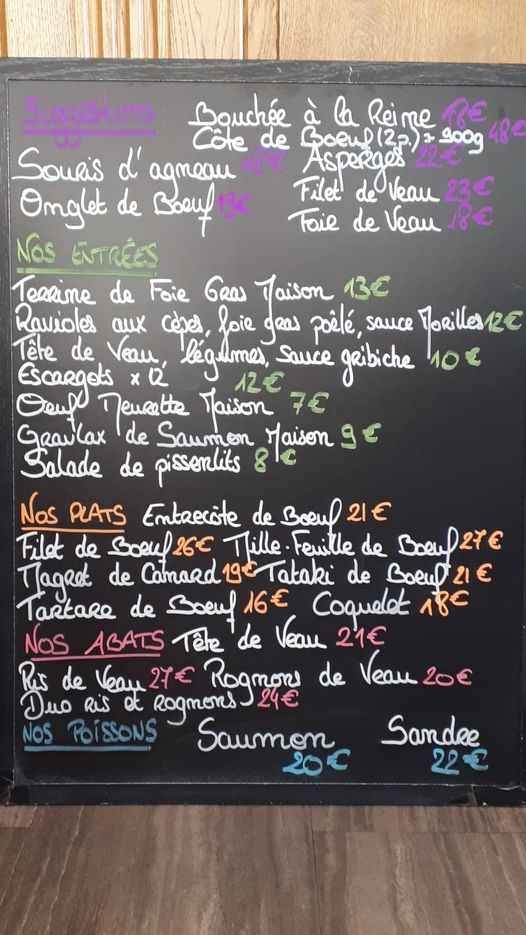 Suggestions Bouchée à la Reine 18€
Côte de Boeuf (2p.) ± 900g 48€
Souris d'agneau Asperges 22€
Onglet de Boeuf Filet de Veau 23€
Foie de Veau 18€
NOS ENTRÉES
Terrine de Foie Gras Maison 13€
Ravioles aux cèpes, foie gras poêlé, sauce Morilles 12€
Tête de Veau, légumes, sauce gribiche 10€
Escargots x 12 12€
Oeuf Meurette Maison 7€
Gravlax de Saumon Maison 9€
Salade de pissenlits 8€
NOS PLATS Entrecôte de Boeuf 21€
Filet de Boeuf 26€ Mille-Feuille de Boeuf 27€
Magret de Canard 19€ Tataki de Boeuf 21€
Tartare de Boeuf 16€ Coquelet 18€
NOS ABATS Tête de Veau 21€
Ris de Veau 27€ Rognons de Veau 20€
Duo Ris et Rognons 24€
NOS POISSONS Saumon Sandre
20€ 22€